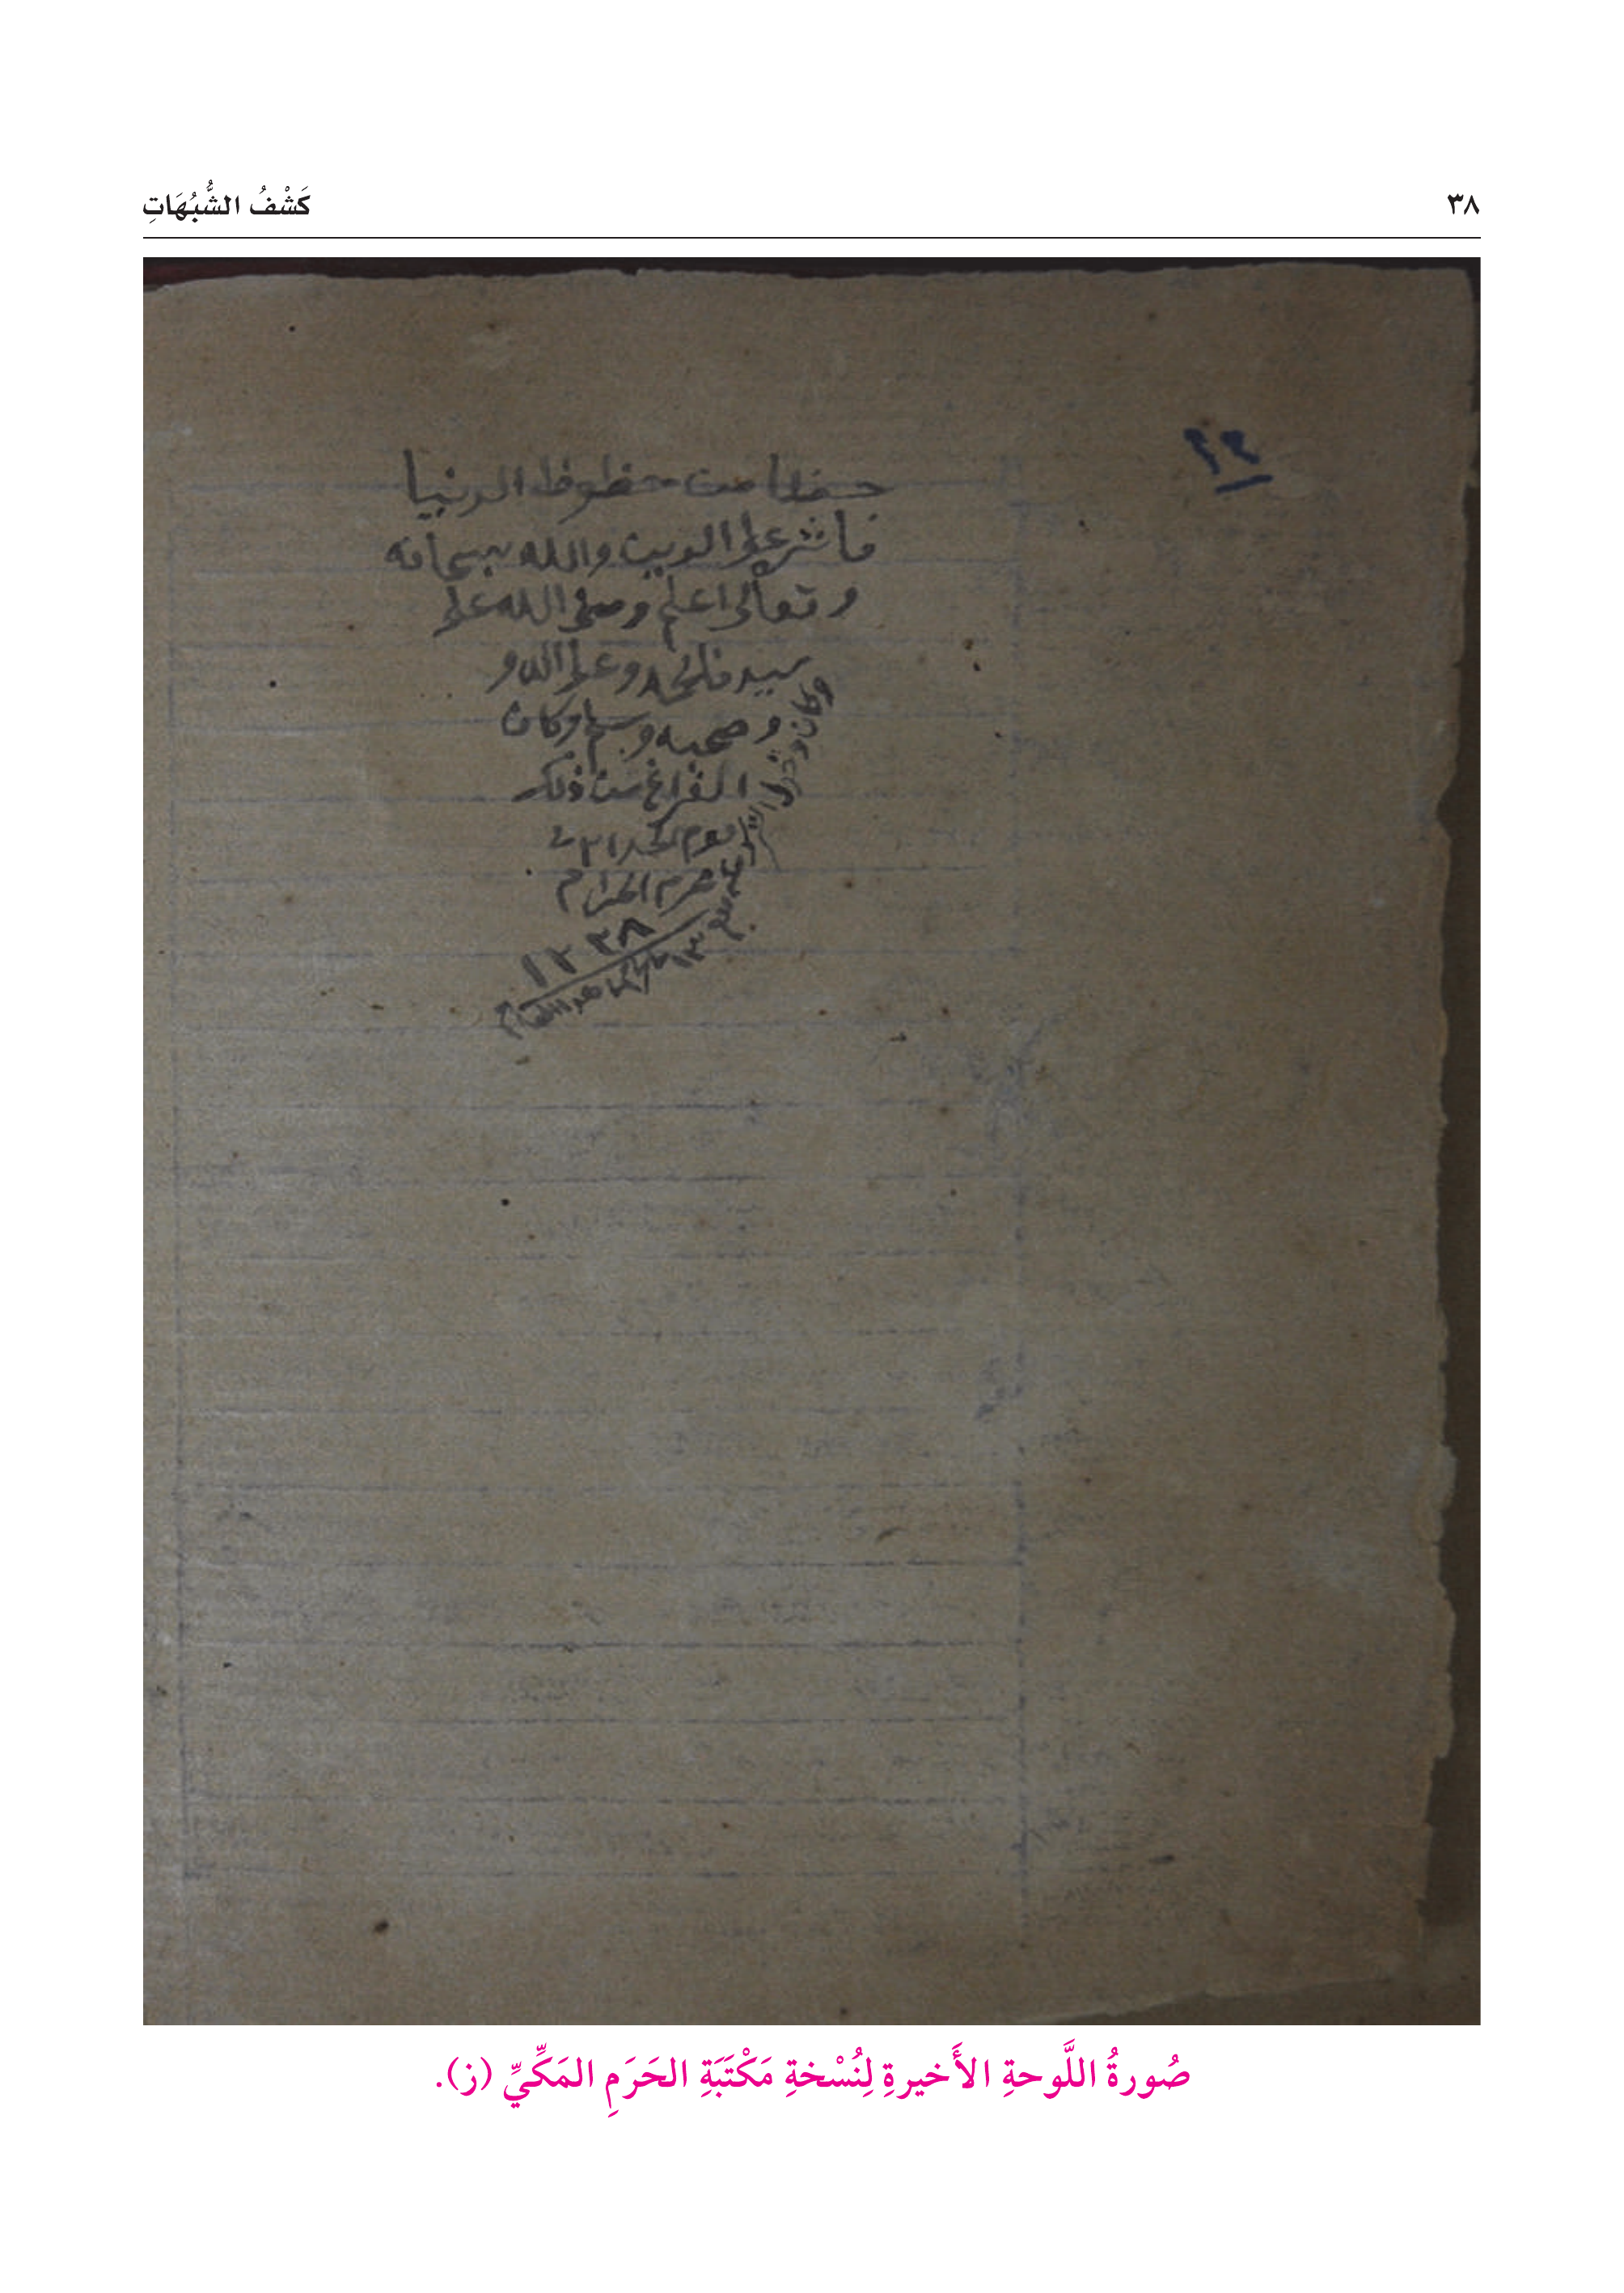 ٣٨
كَشْفُ الشُّبُهَاتِ
١٢
حظا من حظوظ الدنيا
فاثره على الدين والله سبحانه
وتعالى اعلم وصلى الله على
سيدنا محمد وعلى اله و
وصحبه وسلم وكان
الفراغ من ذلك
يوم
محرم الحرام
١٣٣٨
صُورةُ اللَّوحةِ الأَخيرةِ لِنُسْخةِ مَكْتَبَةِ الحَرَمِ المَكِّيِّ (ز).